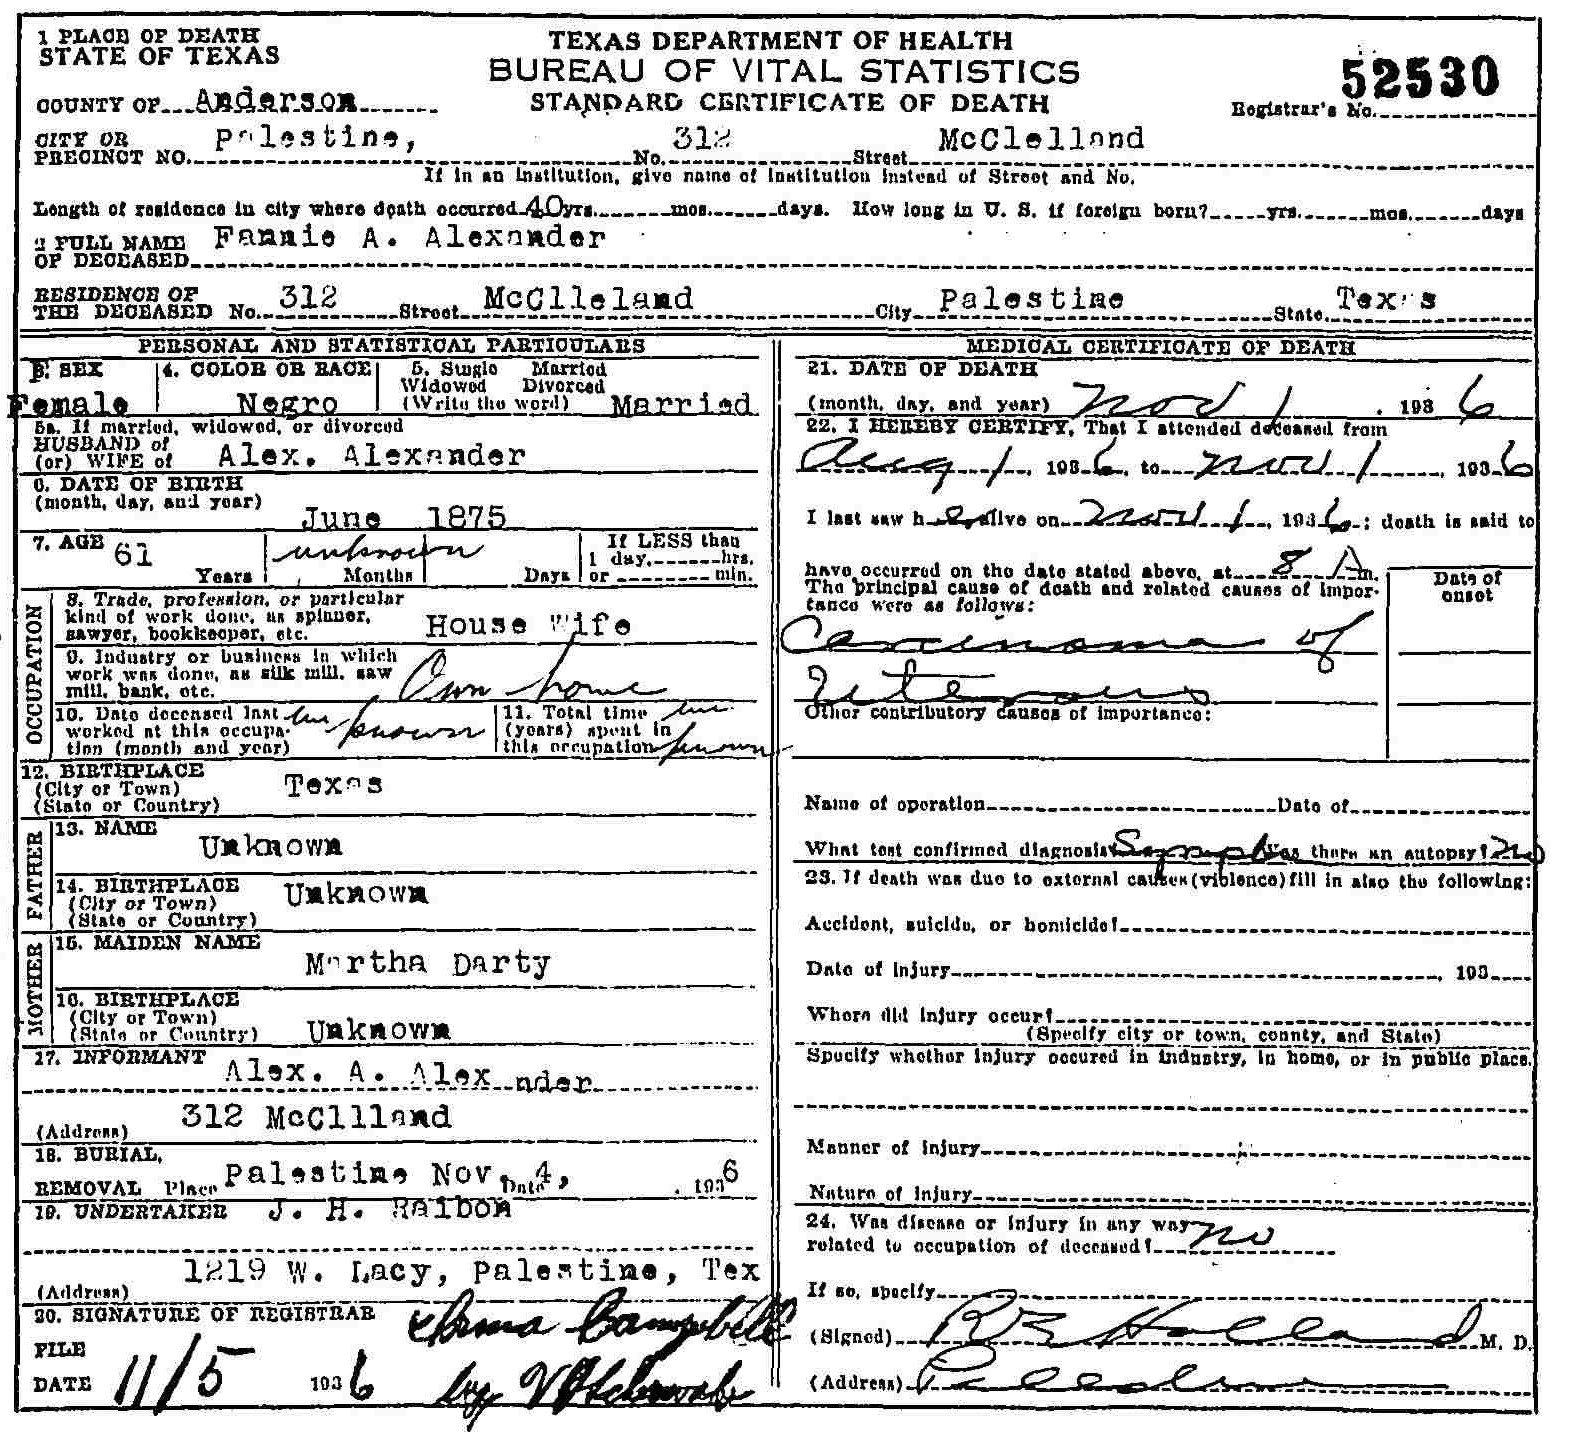 1 PLACE OF DEATH
STATE OF TEXAS
TEXAS DEPARTMENT OF HEALTH
BUREAU OF VITAL STATISTICS
STANDARD CERTIFICATE OF DEATH
52530
COUNTY OF Anderson
Registrar's No.
CITY OR PRECINCT NO. Palestine, No. 312 Street McClelland
If in an institution, give name of institution instead of Street and No.
Length of residence in city where death occurred 40 yrs. mos. days. How long in U. S. if foreign born? yrs. mos. days
2 FULL NAME OF DECEASED Fannie A. Alexander
RESIDENCE OF THE DECEASED No. 312 Street McClleland City Palestine State Texas
PERSONAL AND STATISTICAL PARTICULARS
3. SEX Female
4. COLOR OR RACE Negro
5. Single Married Widowed Divorced (Write the word) Married
5a. If married, widowed, or divorced
HUSBAND of
(or) WIFE of Alex. Alexander
6. DATE OF BIRTH
(month, day, and year) June 1875
7. AGE 61 Years unknown Months Days
If LESS than
1 day, hrs.
or min.
OCCUPATION
8. Trade, profession, or particular
kind of work done, as spinner,
sawyer, bookkeeper, etc. House Wife
9. Industry or business in which
work was done, as silk mill, saw
mill, bank, etc. Own home
10. Date deceased last
worked at this occupa-
tion (month and year) unknown
11. Total time
(years) spent in
this occupation unknown
12. BIRTHPLACE
(City or Town)
(State or Country) Texas
FATHER
13. NAME Unknown
14. BIRTHPLACE
(City or Town)
(State or Country) Unknown
MOTHER
15. MAIDEN NAME Martha Darty
16. BIRTHPLACE
(City or Town)
(State or Country) Unknown
17. INFORMANT Alex. A. Alex nder
(Address) 312 McCllland
18. BURIAL,
REMOVAL Place Palestine Date Nov. 4, 1936
19. UNDERTAKER J. H. Raibon
(Address) 1219 W. Lacy, Palestine, Tex
20. SIGNATURE OF REGISTRAR Irma Campbell
by
FILE
DATE 11/5 1936
MEDICAL CERTIFICATE OF DEATH
21. DATE OF DEATH
(month, day, and year) Nov 1, 1936
22. I HEREBY CERTIFY, That I attended deceased from
Aug 1, 1936, to Nov 1, 1936
I last saw her alive on Nov 1, 1936; death is said to
have occurred on the date stated above, at 8 A m.
The principal cause of death and related causes of impor-
tance were as follows:
Date of onset
Carcinoma of
Uterous
Other contributory causes of importance:
Name of operation Date of
What test confirmed diagnosis? Was there an autopsy? no
23. If death was due to external causes (violence) fill in also the following:
Accident, suicide, or homicide?
Date of injury , 193
Where did injury occur?
(Specify city or town, county, and State)
Specify whether injury occured in industry, in home, or in public place.
Manner of injury
Nature of injury
24. Was disease or injury in any way
related to occupation of deceased? no
If so, specify
(Signed) Holland M. D.
(Address) Palestine